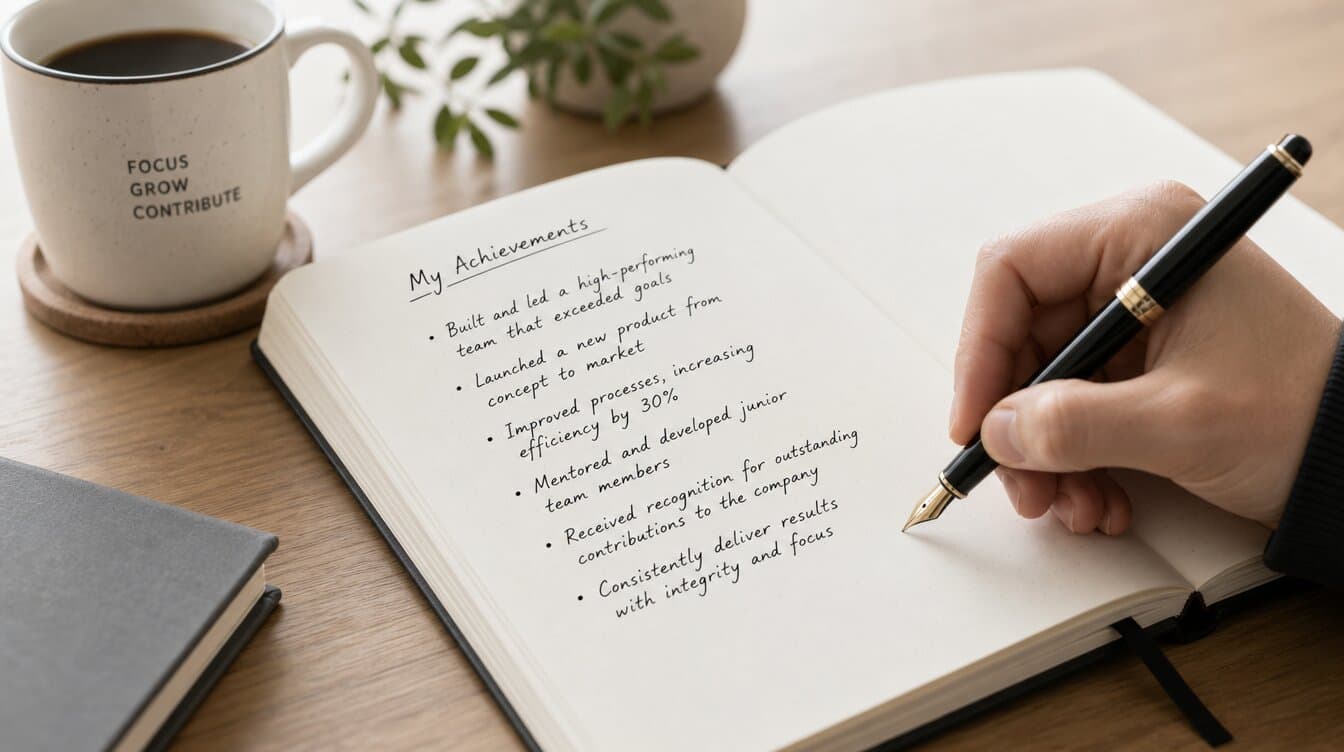 FOCUS
GROW
CONTRIBUTE
My Achievements
• Built and led a high-performing
team that exceeded goals
• Launched a new product from
concept to market
• Improved processes, increasing
efficiency by 30%
• Mentored and developed junior
team members
• Received recognition for outstanding
contributions to the company
• Consistently deliver results
with integrity and focus